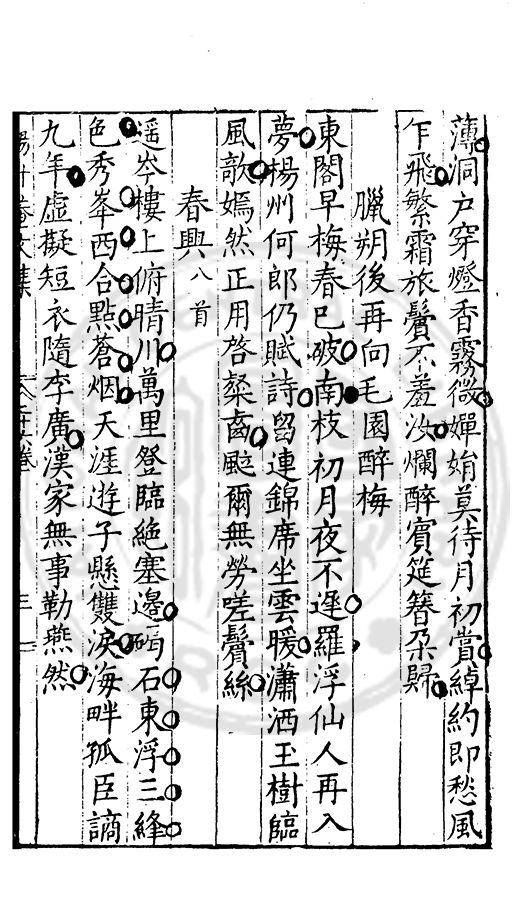 薄洞戶穿燈香霧微嬋娟莫待月初賞綽約即愁風
乍飛繁霜旅鬢不羞汝爛醉賓筵簪朶歸
臘朔後再向毛園醉梅
東閣早梅春已破南枝初月夜不遲羅浮仙人再入
夢楊州何郎仍賦詩留連錦席坐雲暖瀟洒玉樹臨
風欹嫣然正用啓粲齒颩爾無勞嗟鬢絲
春興八首
遥岑樓上俯晴川萬里登臨絶塞邊碣石東浮三絳
色秀峯西合點蒼烟天涯遊子懸雙淚海畔孤臣謫
九年虛擬短衣隨李廣漢家無事勒燕然